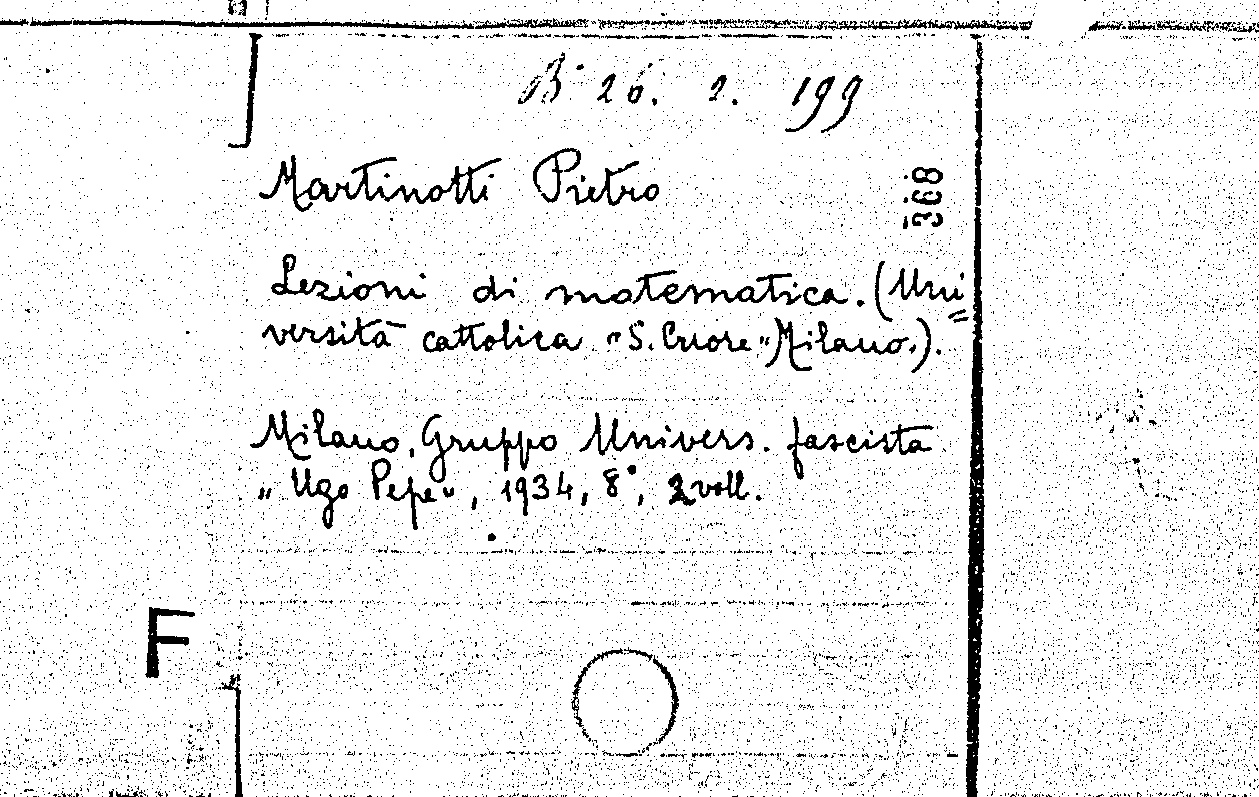 B. 26. 2. 199
Martinotti Pietro
368
Lezioni di matematica. (Uni=
versità cattolica "S. Cuore" Milano.).
Milano, Gruppo Univers. fascista
"Ugo Pepe", 1934, 8°, 2 voll.
F